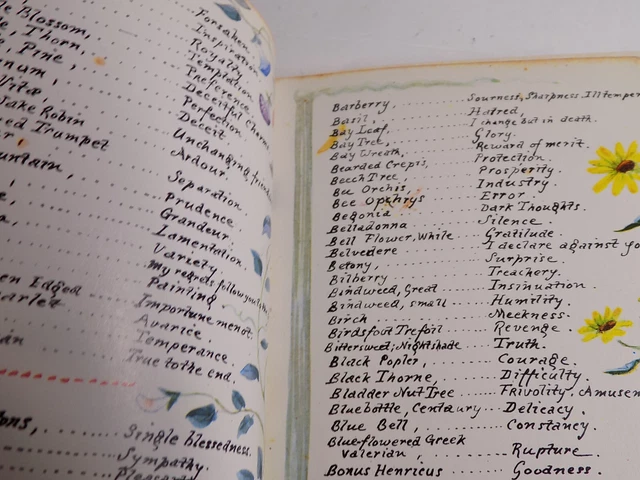 Blossom, Forsaken.
Thorn, Inspiration.
Pine, Royalty.
Temptation
Preference.
Deceitful Charms
Robin Perfection.
Trumpet Deceit
Unchanging friend
Ardour.
Separation
Prudence
Grandeur
Lamentation.
Variety.
My regrets follow you
Edged Painting
Importune me not.
Avarice.
Temperance
True to the end.
Single blessedness.
Sympathy.
Barberry, Sourness, Sharpness, Ill temper
Basil, Hatred,
Bay Leaf, I change but in death.
Bay Tree, Glory.
Bay Wreath, Reward of merit.
Bearded Crepis, Protection.
Beech Tree, Prosperity.
Bee Orchis, Industry.
Bee Ophrys Error.
Begonia Dark Thoughts.
Belladonna Silence.
Bell Flower, White Gratitude.
Belvedere I declare against yo
Betony, Surprise.
Bilberry Treachery.
Bindweed, Great Insinuation.
Bindweed, small Humility.
Birch Meekness.
Birdsfoot Trefoil Revenge.
Bittersweet; Nightshade Truth.
Black Popler, Courage.
Black Thorne, Difficulty.
Bladder Nut Tree Frivolity, Amusem
Bluebottle, Centaury Delicacy.
Blue Bell, Constancy.
Blue-flowered Greek
Valerian, Rupture.
Bonus Henricus Goodness.